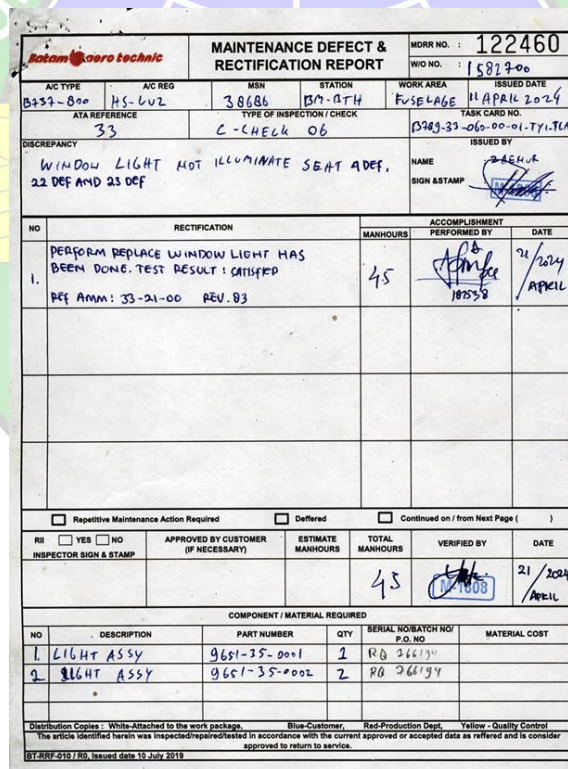 Batam aero technic
MAINTENANCE DEFECT &
RECTIFICATION REPORT
MDRR NO. : 122460
W/O NO. : 1582700
A/C TYPE
B737-800
A/C REG
HS-LUZ
MSN
38686
STATION
BM-BTH
WORK AREA
FUSELAGE
ISSUED DATE
11 APRIL 2024
ATA REFERENCE
33
TYPE OF INSPECTION / CHECK
C-CHECK 06
TASK CARD NO.
B789-33-060-00-01-TY1-TLA
DISCREPANCY
WINDOW LIGHT NOT ILLUMINATE SEAT 4 DEF,
22 DEF AND 23 DEF
ISSUED BY
NAME
SIGN &STAMP
NO
RECTIFICATION
ACCOMPLISHMENT
MANHOURS
PERFORMED BY
DATE
1.
PERFORM REPLACE WINDOW LIGHT HAS
BEEN DONE. TEST RESULT : SATISFIED
REF AMM: 33-21-00 REV. 83
45
21/2024
APRIL
Repetitive Maintenance Action Required
Deffered
Continued on / from Next Page ( )
RII YES NO
INSPECTOR SIGN & STAMP
APPROVED BY CUSTOMER
(IF NECESSARY)
ESTIMATE
MANHOURS
TOTAL
MANHOURS
VERIFIED BY
DATE
45
M-1808
21/2024
APRIL
COMPONENT / MATERIAL REQUIRED
NO DESCRIPTION PART NUMBER QTY SERIAL NO/BATCH NO/ P.O. NO MATERIAL COST
1. LIGHT ASSY 9651-35-0001 1 RQ 266194
2 LIGHT ASSY 9651-35-0002 2 RQ 266194
Distribution Copies : White-Attached to the work package, Blue-Customer, Red-Production Dept, Yellow - Quality Control
The article identified herein was inspected/repaired/tested in accordance with the current approved or accepted data as reffered and is consider
approved to return to service.
BT-RRF-010 / R0, Issued date 10 July 2019